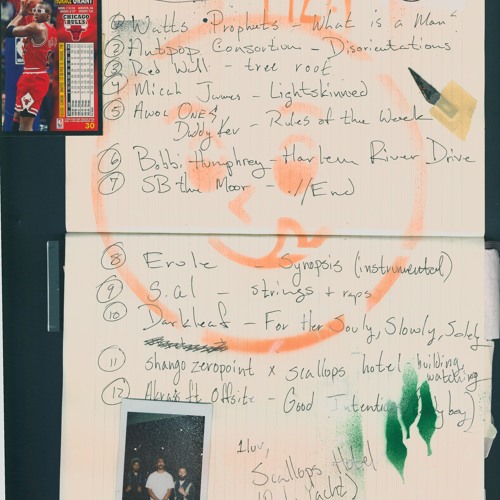 HORACE GRANT
CHICAGO BULLS
30
① Watts Prophets - What is a Man
② Antipop Consortium - Disorientations
③ Red Wall - tree root
4 Micah James - Lightskinned
⑤ Awol One &
Daddy Kev - Rules of the Week
⑥ Bobbi Humphrey - Harlem River Drive
⑦ SB the Moor - .//End
⑧ Erule - Synopsis (instrumental)
⑨ S.al - strings + raps
⑩ Darkleaf - For Her Souly, Slowly, Solely
⑪ shango zeropoint x scallops hotel - building
watching
⑫ ft Offsite - Good
1luv,
Scallops Hotel